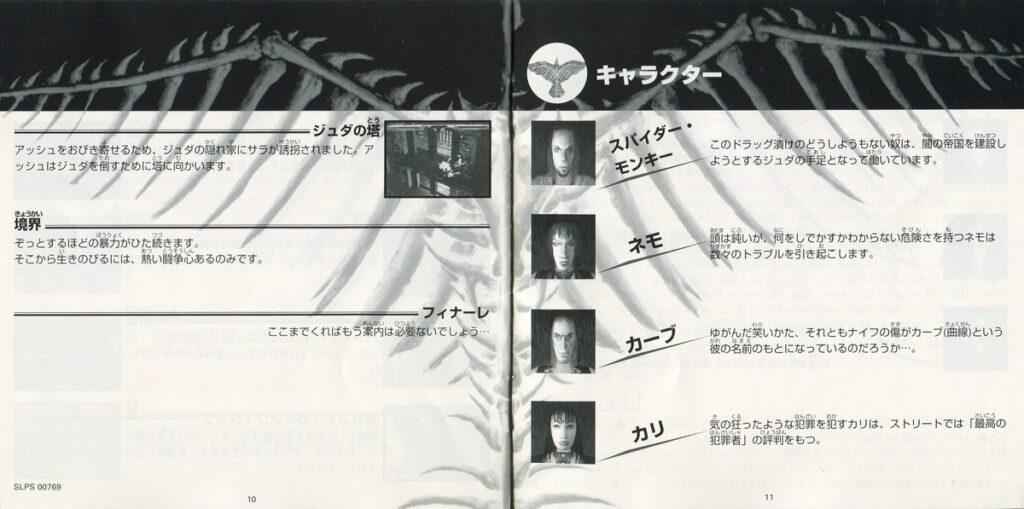 ジュダの塔
アッシュをおびき寄せるため、ジュダの隠れ家にサラが誘拐されました。ア
ッシュはジュダを倒すために塔に向かいます。
境界
ぞっとするほどの暴力がひた続きます。
そこから生きのびるには、熱い闘争心あるのみです。
フィナーレ
ここまでくればもう案内は必要ないでしょう…
SLPS 00769
10
キャラクター
スパイダー・
モンキー
このドラッグ漬けのどうしようもない奴は、闇の帝国を建設し
ようとするジュダの手足となって働いています。
ネモ
頭は鈍いが、何をしでかすかわからない危険さを持つネモは
数々のトラブルを引き起こします。
カーブ
ゆがんだ笑いかた、それともナイフの傷がカーブ(曲線)という
彼の名前のもとになっているのだろうか…。
カリ
気の狂ったような犯罪を犯すカリは、ストリートでは「最高の
犯罪者」の評判をもつ。
11